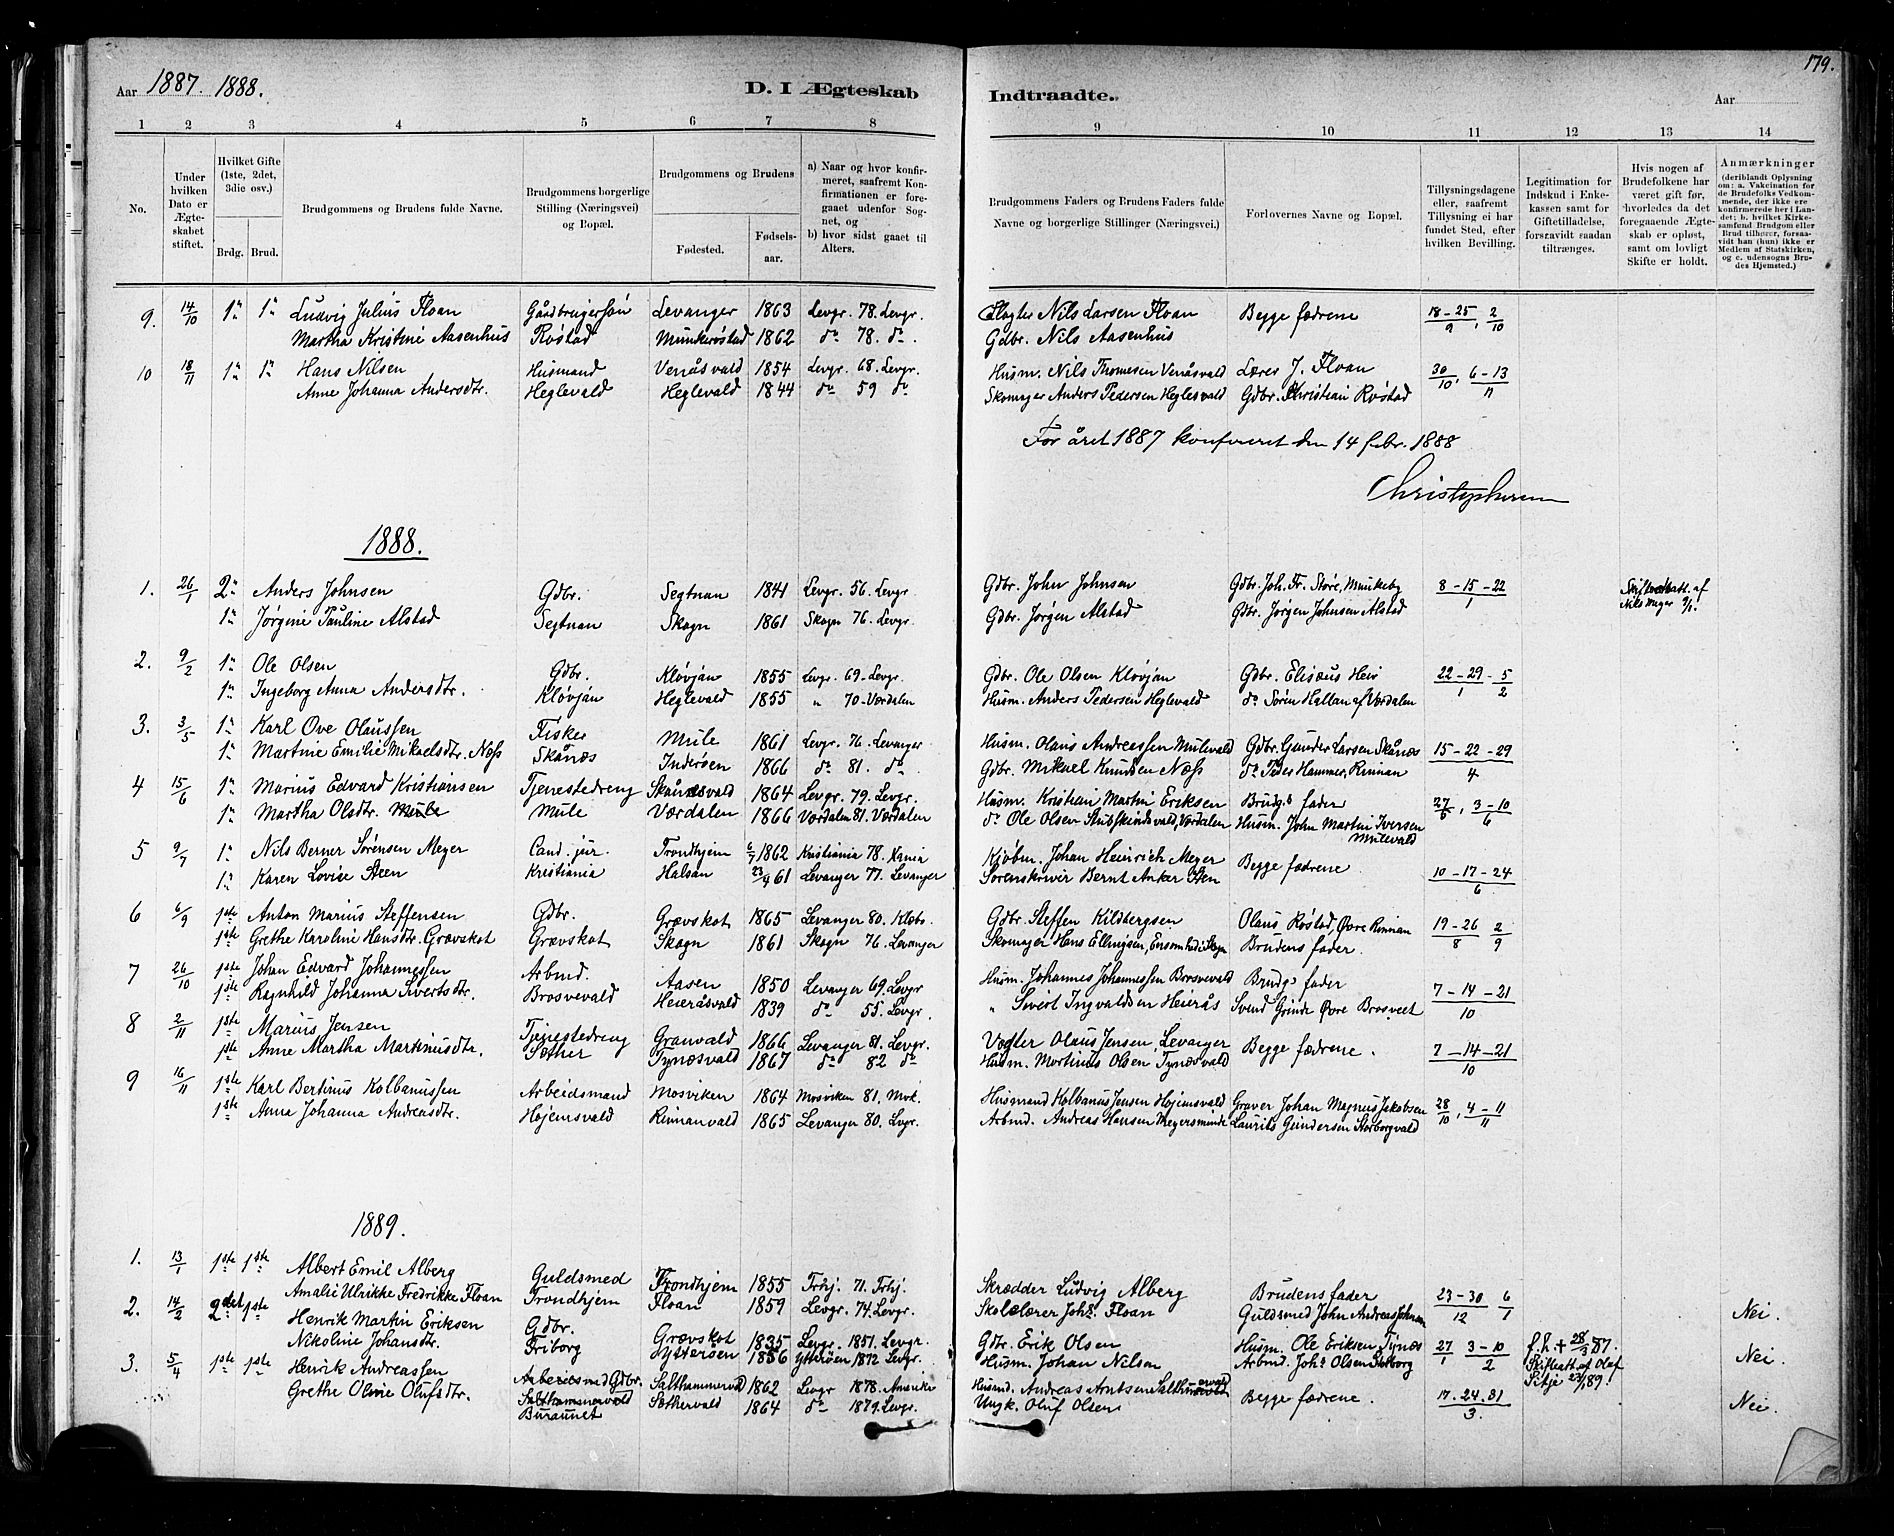 179.
Aar 1887. 1888. D. I Ægteskab Indtraadte. Aar
1 2 3 4 5 6 7 8 9 10 11 12 13 14
No.
Under hvilken Dato er Ægteskabet stiftet.
Hvilket Gifte (1ste, 2det, 3die osv.)
Brdg. Brud.
Brudgommens og Brudens fulde Navne.
Brudgommens borgerlige Stilling (Næringsvei) og Bopæl.
Brudgommens og Brudens
Fødested. Fødselsaar.
a) Naar og hvor konfirmeret, saafremt Konfirmationen er foregaaet udenfor Sognet, og
b) hvor sidst gaaet til Alters.
Brudgommens Faders og Brudens Faders fulde Navne og borgerlige Stillinger (Næringsvei.)
Forlovernes Navne og Bopæl.
Tillysningsdagene eller, saafremt Tillysning ei har fundet Sted, efter hvilken Bevilling.
Legitimation for Indskud i Enkekassen samt for Giftetilladelse, forsaavidt saadan tiltrænges.
Hvis nogen af Brudefolkene har været gift før, hvorledes da det foregaaende Ægteskab er opløst, samt om lovligt Skifte er holdt.
Anmærkninger (deriblandt Oplysning om: a. Vakcination for de Brudefolks Vedkommende, der ikke ere konfirmerede her i Landet; b. hvilket Kirkesamfund Brudgom eller Brud tilhører, forsaavidt han (hun) ikke er Medlem af Statskirken, og c. udensogns Brudes Hjemsted.)
9. 14/10 1ste 1ste Ludvig Julius Floan Gårdbrugersøn Levanger 1863 Levgr. 78. Levgr. Slagter Nils Larsen Floan Begge fædrene 18-25/9, 2/10
Martha Kristine Aasenhus Røstad Munkerøstad 1862 do 78. do. Gdbr. Nils Aasenhus
10 18/11 1ste 1ste Hans Nilsen Husmand Venåsvald 1854 Levgr. 68. Levgr. Husm. Nils Thomesen Venåsvald Lærer J. Floan 30/10, 6-13/11
Anne Johanna Andersdtr. Heglevald Heglevald 1844 do 59 do Skomager Anders Pedersen Heglesvald Gdbr. Christian Røstad
For året 1887 konfereret den 14 febr. 1888
Christophersen
1888.
1. 26/1 2den Anders Johnsen Gdbr. Segtnan 1841 Levgr. 56. Levgr Gdbr. John Johnsen Gdbr. Joh. Fr. Støre, Munkeby 8-15-22/1 Skifteratt. af
1ste Jørgine Pauline Alstad Segtnan Skogn 1861 Skogn 76. Levgr. Gdbr. Jørgen Alstad Gdbr. Jørgen Johnsen Alstad
2. 9/2 1ste Ole Olsen Gdbr. Kløvjan 1855 Levgr. 69-Levgr. Gdbr. Ole Olsen Kløvjan Gdbr. Elisæus Heir 22-29/1-5/2
1ste Ingeborg Anna Andersdtr. Kløvjan Heglevald 1855 " 70-Værdalen Husm. Anders Pedersen Heglevald do Søren Hallan af Værdalen
3. 3/5 1ste Karl Ove Olaussen Fisker Mule 1861 Levgr. 76. Levanger Husm. Olaus Andreassen Mulevald Gdbr. Gunder Larsen Skånæs 15-22-29/4
1ste Martine Emilie Mikaelsdtr. Næss Skånæs Inderøen 1866 do 81. do. Gdbr. Mikael Knudsen Næss do Peder Hammer, Rinnan
4 15/6 1ste Marius Edvard Kristiansen Tjenestedreng Skånæsvald 1864 Levgr. 79. Levgr. Husm. Kristian Martin Eriksen Brudgs fader 27/5, 3-10/6
1ste Martha Olsdtr. Mule Mule Værdalen 1866 Værdalen 81. Værdalen do Ole Olsen Stubskindsvald, Værdalen Husm. John Martin Iversen Mulevald
5 9/7 1ste Nils Berner Sørensen Meyer Cand. jur. Trondhjem 6/7 1862 Kristiania 78. Kania Kjøbm. Johan Heinrich Meyer Begge fædrene. 10-17-24/6
1ste Karen Lovise Steen Kristiania Halsan 23/9 61 Levanger 77. Levanger Sorenskriver Bernt Anker Sten
6 6/9 1ste Anton Marius Steffensen Gdbr. Grævskot 1865 Levanger 80. Klæbo. Gdbr. Steffen Kildbergsen Olaus Røstad, Øvre Rinnan 19-26/8 2/9
1ste Grethe Karoline Hansdtr. Grævskot Grævskot Skogn 1861 Skogn 76. Levanger Skomager Hans Ellingsen, Ensomhed i Skogn Brudens fader.
7 26/10 1ste Johan Edvard Johannessen Arbmd. Aasen 1850 Levanger 69. Levgr Husm. Johannes Johannessen Brosvevald Brudgs fader 7-14-21/10
1ste Ragnhild Johanna Sivertsdtr. Brosvevald Heieråsvald 1839 do 55. Levgr. " Sivert Ingvaldsen Heierås Svend Grinde Øvre Brosveet
8 2/11 1ste Marius Jensen Tjenestedreng Granvald 1866 Levanger 81. Levgr. Vogter Olaus Jensen, Levanger Begge fædrene. 7-14-21/10
1ste Anne Martha Martinusdtr. Sæther Tynæsvald 1867 do 82 do Husm. Martinus Olsen, Tynæsvald
9 16/11 1ste Karl Bertinus Kolbanussen Arbeidsmand Mosviken 1864 Mosviken 81. Mvk. Husmand Kolbanus Jensen Højemsvald Graver Johan Magnus Jakobsen 28/10, 4-11/11
1ste Anna Johanna Andreasdtr. Højemsvald Rinnanvald 1865 Levanger 80. Lvgr. Arbmd. Andreas Hansen Meyersminde Laurits Gundersen Storborgvald
1889.
1. 13/1 1ste 1ste Albert Emil Alberg Guldsmed Trondhjem 1855 Trhj. 71. Trhj. Skrædder Ludvig Alberg Brudens fader 23-30/12 6/1 Nei.
Amalie Ulrikke Fredrikke Floan Trondhjem Floan 1859 Levgr. 74. Levgr. Skolelærer Johs. Floan Guldsmed John Andreas Johnsen
2. 14/2 2det 1ste Henrik Martin Eriksen Gdbr. Grævskot 1835 Levgr. 1851. Levgr. Gdbr. Erik Olsen Husm. Ole Eriksen Tynæs 27/1 3-10/2 f. h. + 28/3 87. Skifteatt. af Olaf Sitje 23/1 89. Nei.
Nikoline Johansdtr. Friborg Ytterøen 1856 Ytterøen 1872 Levgr. Husm. Johan Nilsen Arbmd. Johs Olsen Storborg
3. 5/4 1ste 1ste Henrik Andreassen Arbeidsmd Gdbr. Salthammervald 1862 Levgr 1878. Amerika Husmd. Andreas Arntsen Salthammervald Begge fædrene. 17.24.31/3. Nei.
Grethe Oline Olufsdtr. Salthammervald Buraunet Sæthervald 1864 do 1879. Levgr. Ungk. Oluf Olsen